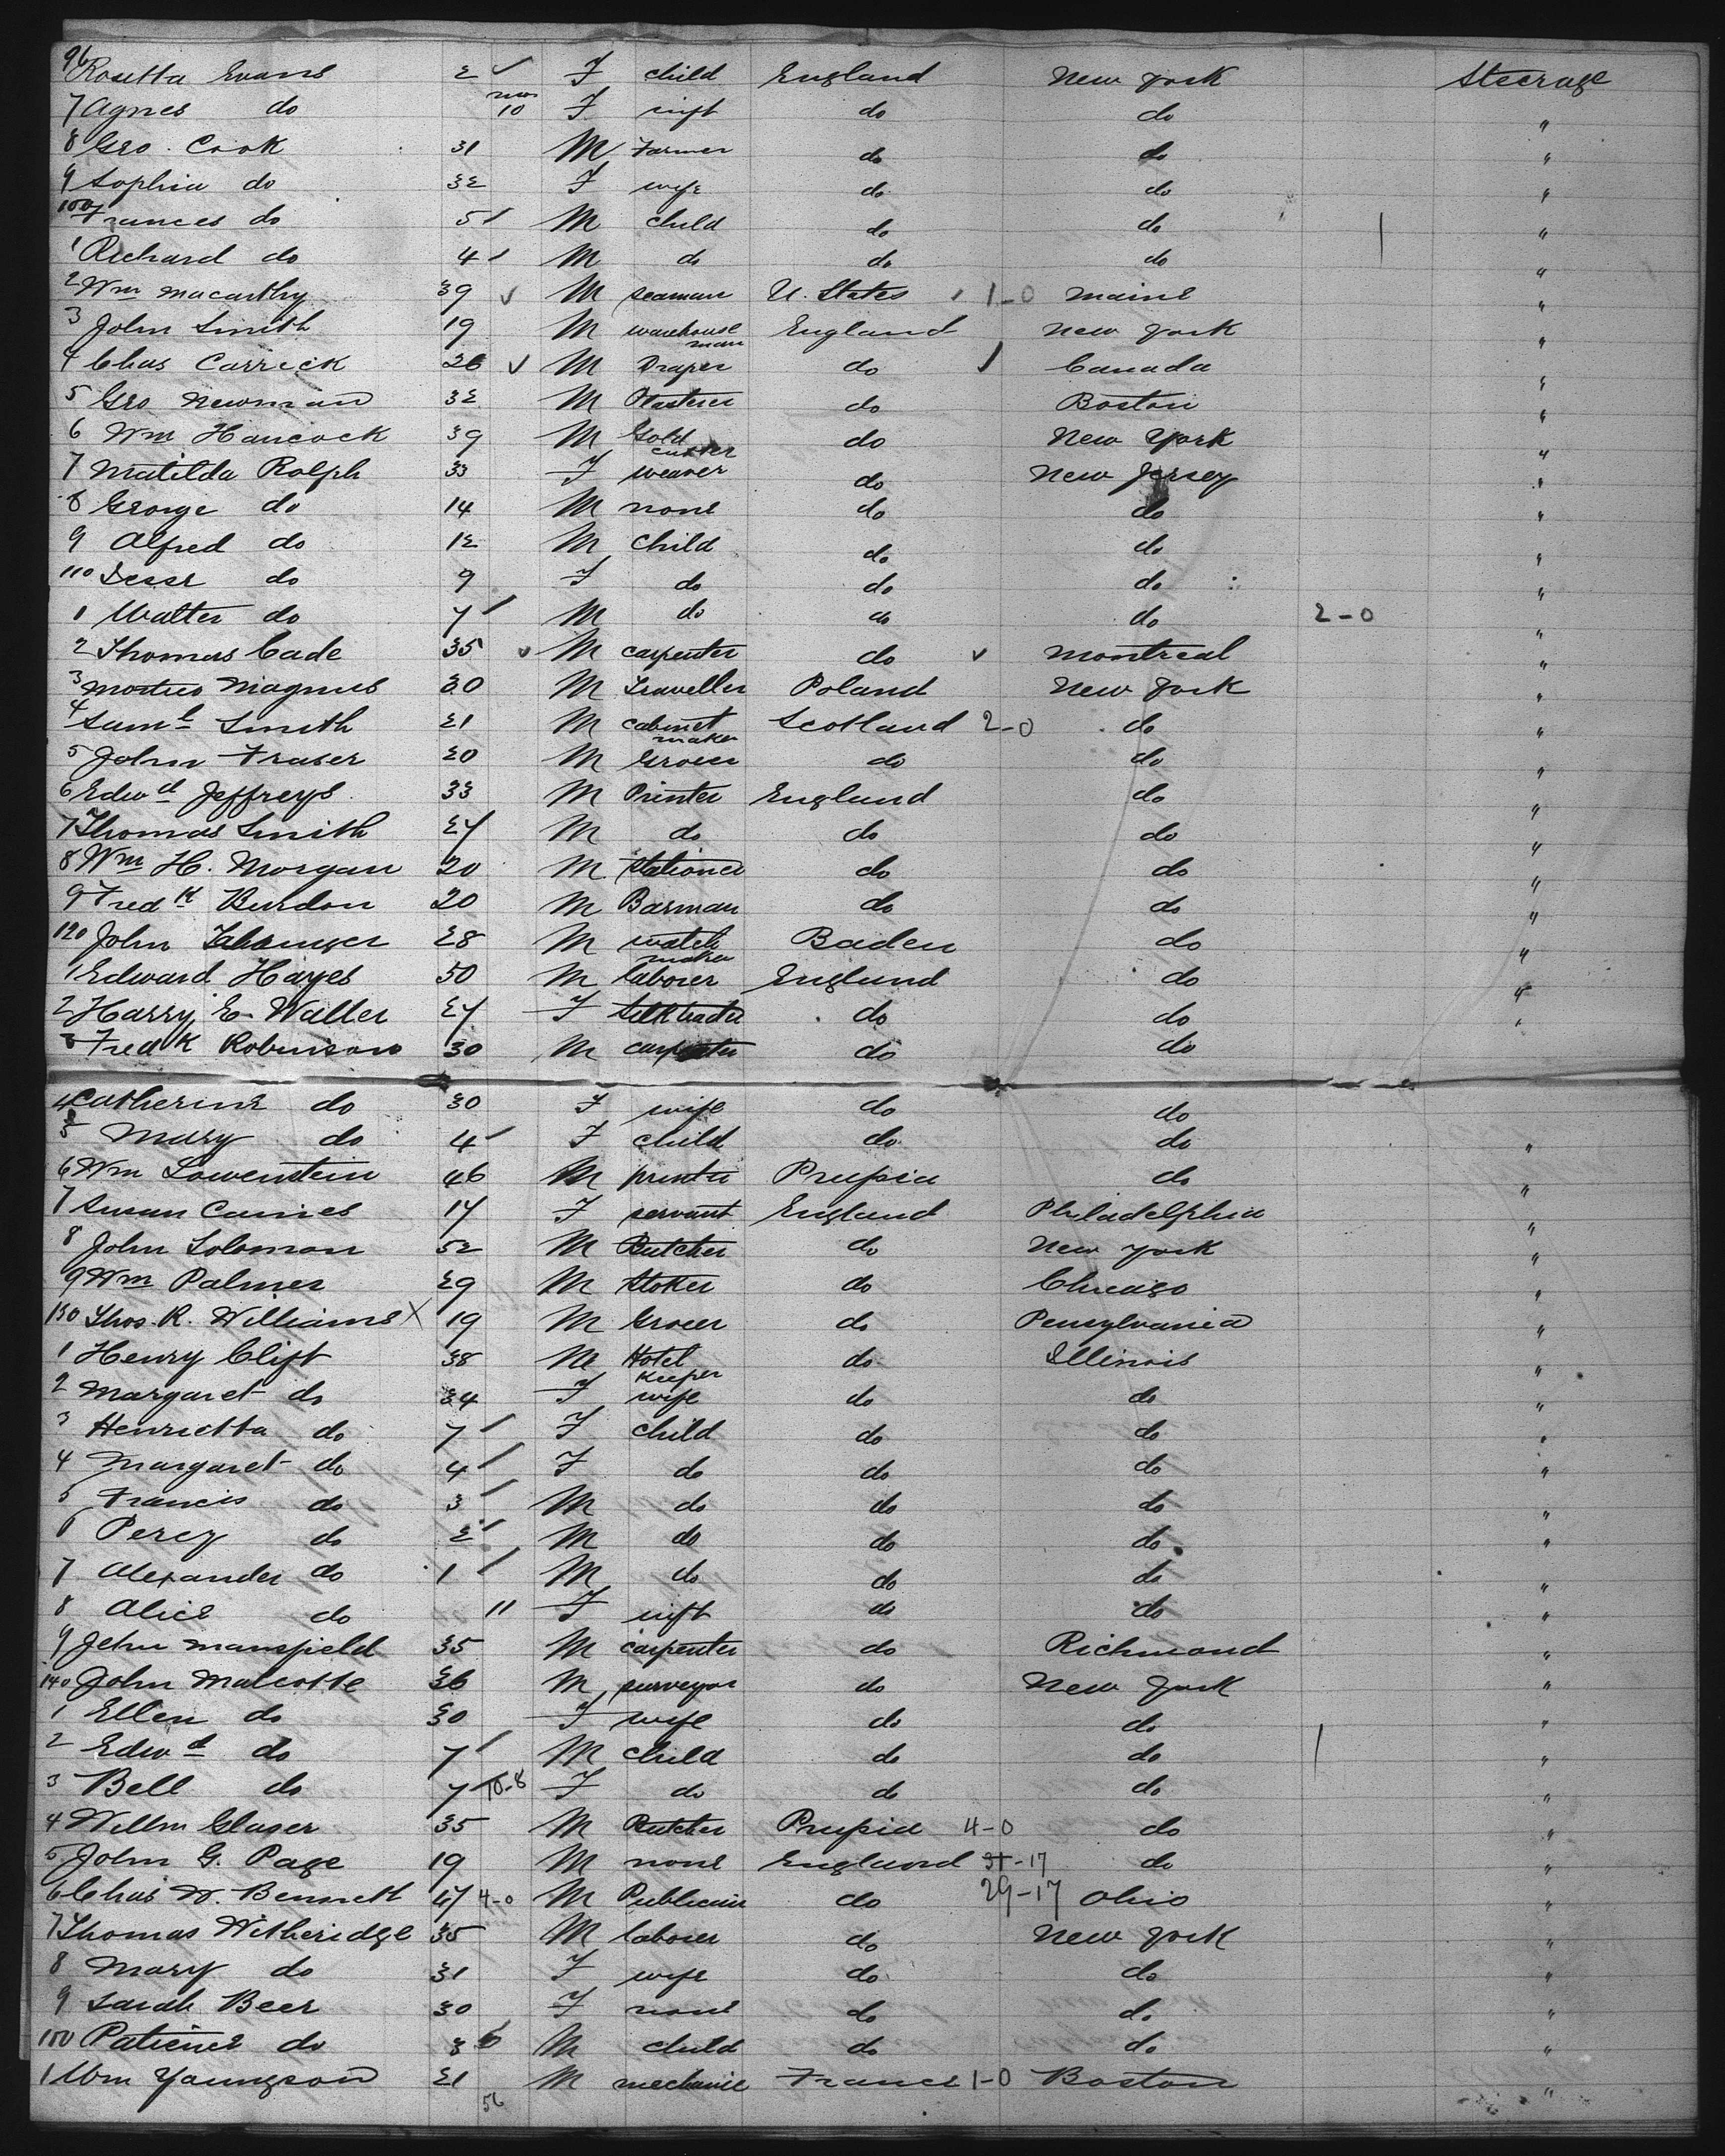 96 Rosetta Evans 2 ✓ F child England New York Steerage
7 Agnes do mos 10 F inft do do "
8 Geo. Cook 31 M Farmer do do "
9 Sophia do 32 F wife do do "
100 Frances do 5 M child do do "
1 Richard do 4 M do do do "
2 Wm Macarthy 39 ✓ M seaman U. States 1-0 Maine "
3 John Smith 19 M warehouse man England New York "
4 Chas Carrick 26 ✓ M Draper do ✓ Canada "
5 Geo Newman 32 M Plasterer do Boston "
6 Wm Hancock 39 M Gold cutter do New York "
7 Matilda Rolph 33 F weaver do New Jersey "
8 George do 14 M none do do "
9 Alfred do 12 M child do do "
110 Jesse do 9 F do do do "
1 Walter do 7 M do do do 2-0 "
2 Thomas Cade 35 ✓ M carpenter do ✓ Montreal "
3 Magnus 30 M Traveller Poland New York "
4 Saml Smith 21 M cabinet maker Scotland 2-0 do "
5 John Fraser 20 M Grocer do do "
6 Edwd Jeffreys 33 M Printer England do "
7 Thomas Smith 27 M do do do "
8 Wm H. Morgan 20 M stationer do do "
9 Fredk Burdon 20 M Barman do do "
120 John 28 M watch maker Baden do "
1 Edward Hayes 50 M laborer England do "
2 Harry E. Walter 27 F do do "
3 Fredk Robinson 30 M carpenter do do
4 Catherine do 30 F wife do do
5 Mary do 4 F child do do "
6 Wm Lowenstein 46 M printer Prussia do "
7 Susan Caines 17 F servant England Philadelphia "
8 John Soloman 52 M Butcher do New York "
9 Wm Palmer 29 M Stoker do Chicago "
130 Thos. R. Williams X 19 M Grocer do Pensylvania "
1 Henry Clift 38 M Hotel Keeper do Illinois "
2 Margaret do 34 F wife do do "
3 Henrietta do 7 F child do do "
4 Margaret do 4 F do do do "
5 Francis do 3 M do do do "
6 Percy do 2 M do do do "
7 Alexander do 1 M do do do "
8 Alice do 11 F inft do do "
9 John Mansfield 35 M carpenter do Richmond "
140 John Malcotte 36 M surveyor do New York "
1 Ellen do 30 F wife do do "
2 Edwd do 7 M child do do "
3 Bell do 7 10-8 F do do do "
4 Willm Glaser 35 M Butcher Prussia 4-0 do "
5 John G. Page 19 M none England 31-17 do "
6 Chas W. Bennett 47 4-0 M Publican do 29-17 Ohio "
7 Thomas Witheridge 35 M laborer do New York "
8 Mary do 31 F wife do do "
9 Sarah Beer 30 F none do do "
150 Patience do 3 M child do do "
1 Wm Youngson 21 M mechanic France 1-0 Boston "
56